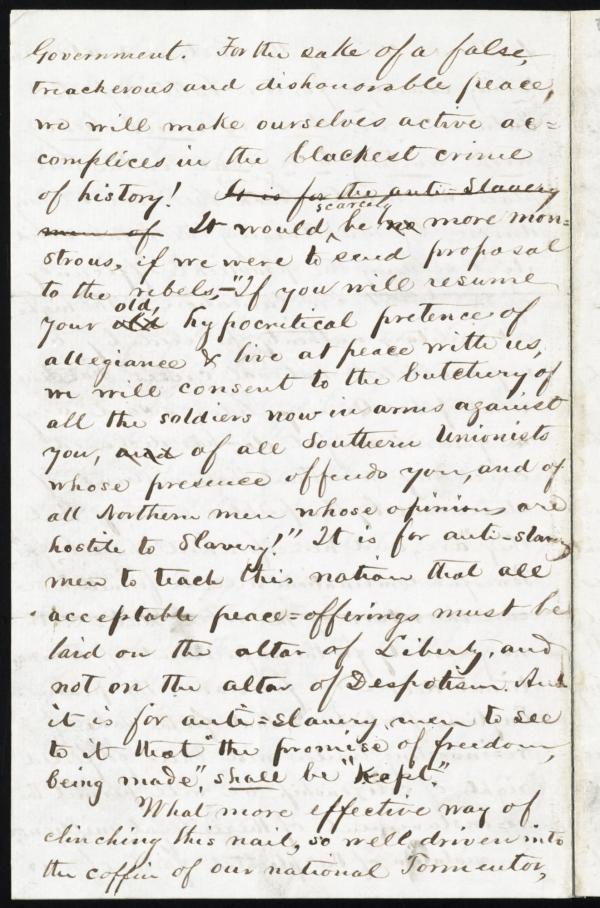 Government. For the sake of a false,
treacherous and dishonorable peace,
we will make ourselves active ac=
complices in the blackest crime
of history! It is for the anti-Slavery
men of It would scarcely be no more mon=
strous, if we were to send proposal
to the rebels,—"If you will resume
your old old, hypocritical pretence of
allegiance & live at peace with us,
we will consent to the butchery of
all the soldiers now in arms against
you, and of all Southern Unionists
whose presence offends you, and of
all Northern men whose opinions are
hostile to Slavery!" It is for anti-slavery
men to teach this nation that all
acceptable peace=offerings must be
laid on the altar of Liberty, and
not on the altar of Despotism. And
it is for anti=slavery men to see
to it that "the promise of freedom,
being made", shall be "Kept"
What more effective way of
clinching this nail, so well driven into
the coffin of our national Tormentor,